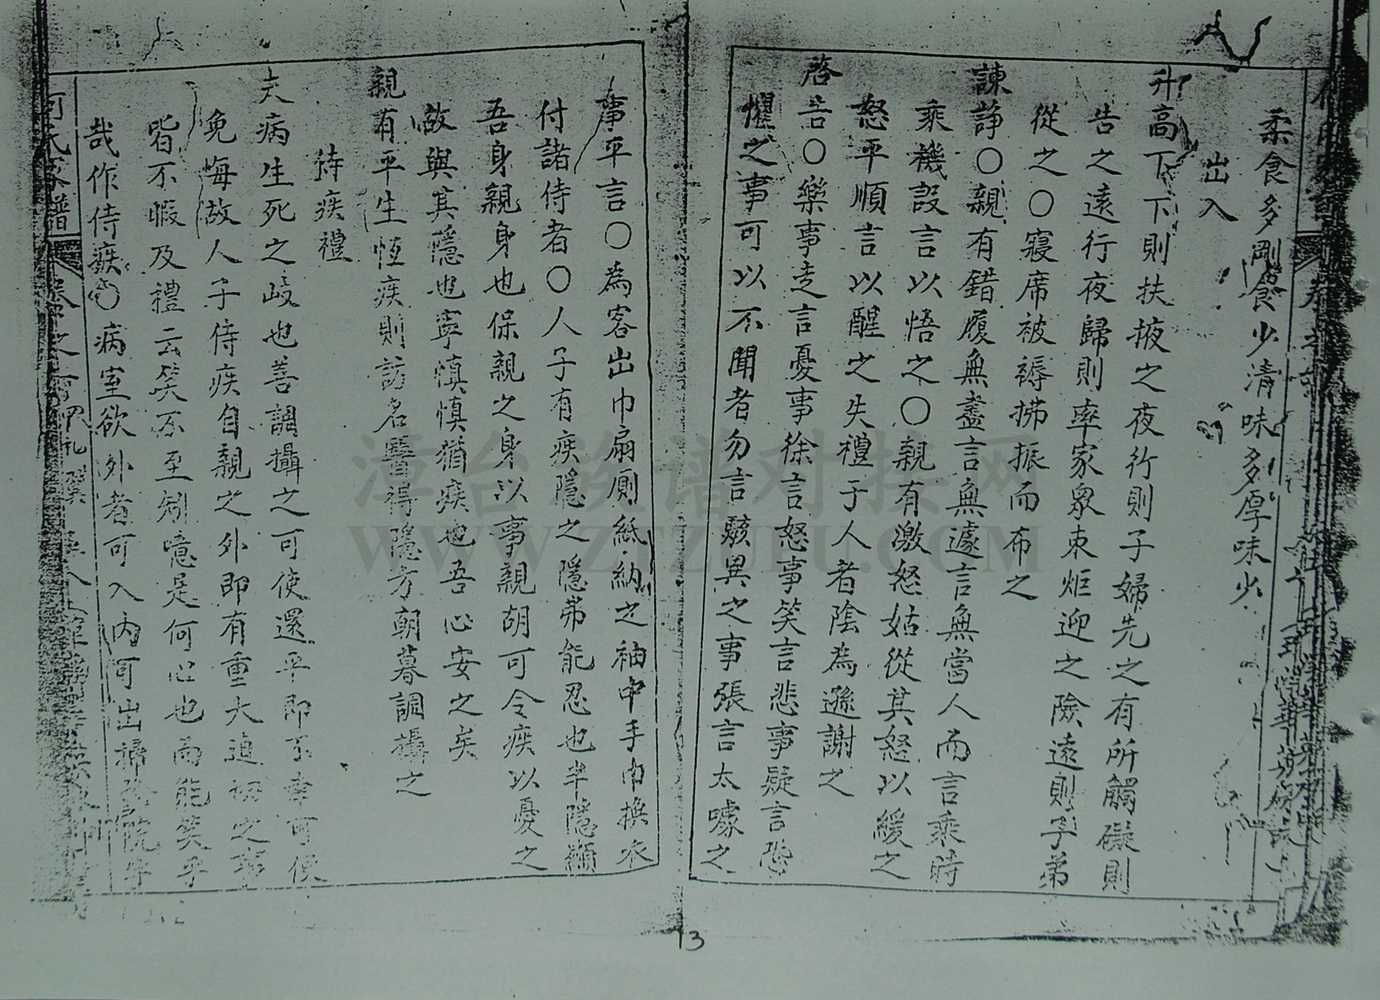 柔食多剛食少清味多厚味少
出入
升高下下則扶掖之夜行則子婦先之有所觸礙則
告之遠行夜歸則率家衆束炬迎之險遠則子弟
從之〇寢席被褥拂振而布之
諫諍〇親有錯履無盡言無遽言無當人而言乘時
乘機設言以悟之〇親有激怒姑從其怒以緩之
怒平順言以醒之失禮于人者陰為遜謝之
啓告〇樂事走言憂事徐言怒事笑言悲事疑言恐
懼之事可以不聞者勿言駭異之事張言太噱之
事平言〇為客出巾扇廁紙納之袖中手巾換衣
付諸侍者〇人子有疾隱之隱弗能忍也半隱顯
吾身親身也保親之身以事親胡可令疾以憂之
故與其隱也寧慎慎猶疾也吾心安之矣
親有平生恆疾則訪名醫得隱方朝暮調攝之
侍疾禮
夫病生死之岐也善調攝之可使還平即不幸可俟
免悔故人子侍疾自親之外即有重大迫切之事
皆不暇及禮云笑不至矧噫是何心也而能笑乎
哉作侍疾〇病室欲外者可入內可出掃
漳台族谱对接网
WWW.ZTZUPU.COM
13